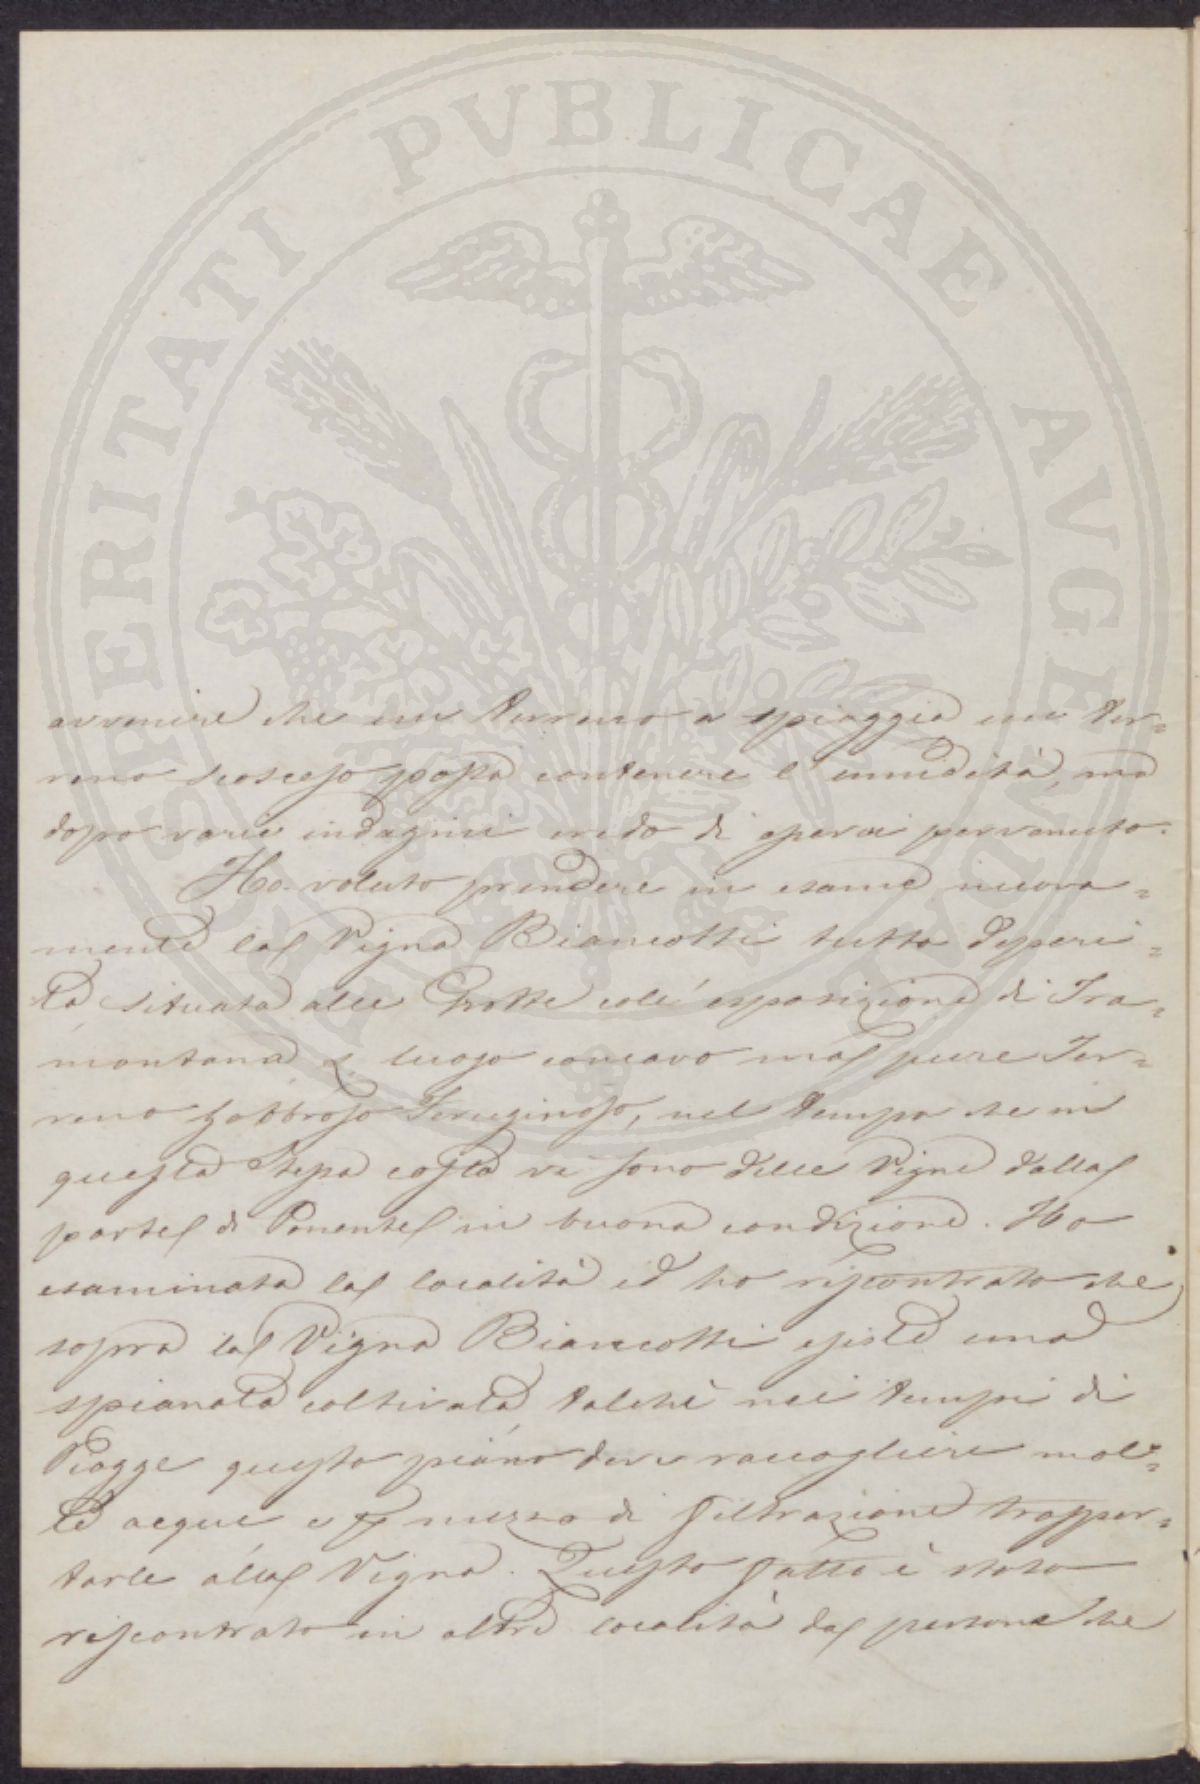 PROSPERITATI PVBLICAE AVGENDAE
avvenire che un terreno a spiaggia un ter=
reno scosceso possa contenere l'umidità, ma
dopo varie indagini credo di esservi pervenuto.
Ho voluto prendere in esame nuova=
mente la Vigna Biancotti tutta deperi=
ta situata alle Grotte coll'esposizione di Tra=
montana e luogo concavo ma pure Ter=
reno gabbroso Ferruginoso, nel tempo che in
questa stessa costa vi sono delle Vigne dalla
parte di Ponente in buona condizione. Ho
esaminata la località ed ho riscontrato che
sopra la Vigna Biancotti esiste una
spianata coltivata talchè nei tempi di
Piogge questo piano deve raccogliere mol=
te acque e p mezzo di filtrazione trasspor=
tarle alla Vigna. Questo fatto è stato
riscontrato in altre località da persone che